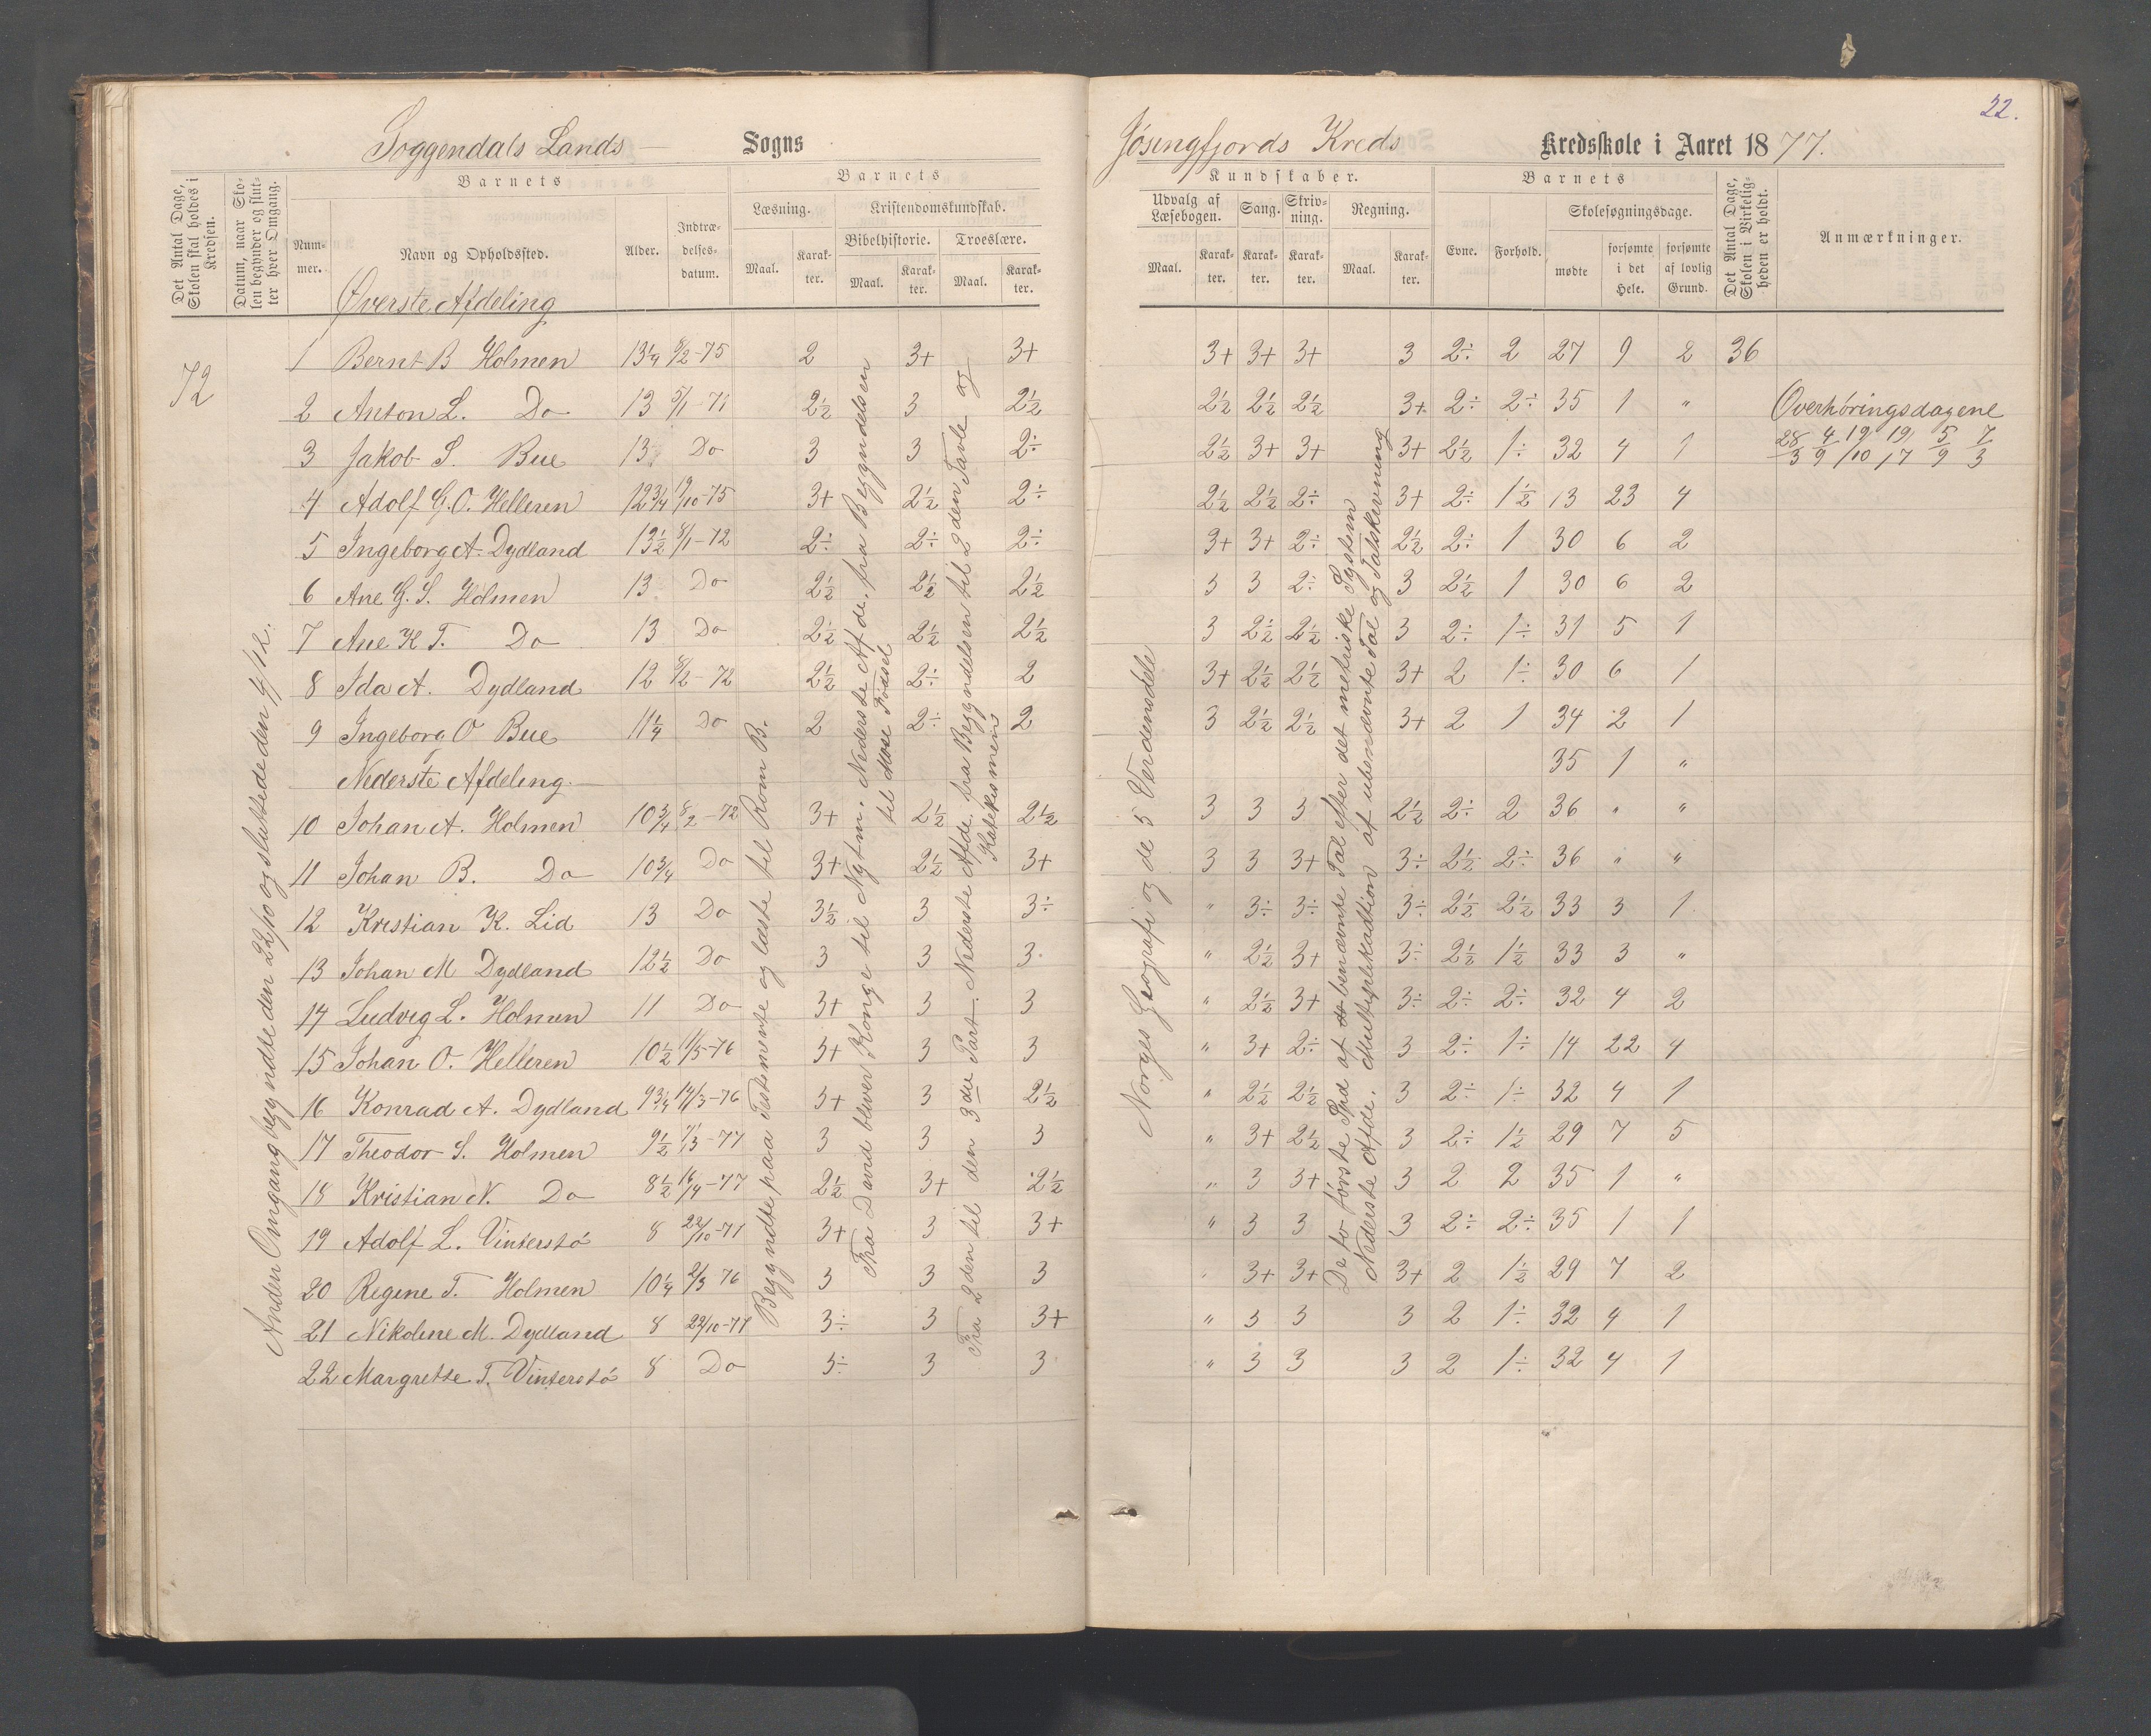 22.
Soggendals Lands – Sogns
Jösingfjords Kreds Kredsskole i Aaret 1877.
Det Antal Dage, Skolen skal holdes i Kredsen.
Datum, naar Skolen begynder og slutter hver Omgang.
Barnets
Nummer.
Navn og Opholdssted.
Alder.
Indtrædelsesdatum.
Barnets
Læsning.
Maal.
Karakter.
Kristendomskundskab.
Bibelhistorie.
Maal.
Karakter.
Troeslære.
Maal.
Karakter.
Kundskaber.
Udvalg af Læsebogen.
Maal.
Karakter.
Sang.
Karakter.
Skrivning.
Karakter.
Regning.
Maal.
Karakter.
Barnets
Evne.
Forhold.
Skolesøgningsdage.
mødte
forsømte i det Hele.
forsømte af lovlig Grund.
Det Antal Dage, Skolen i Virkeligheden er holdt.
Anmærkninger.
72
Anden Omgang begyndte den 22/10 og sluttede den 4/12.
Øverste Afdeling
1 Bernt B Holmen 13 1/4 8/2-75 2 3+ 3+ 3+ 3+ 3+ 3 2÷ 2 27 9 2 36
2 Anton L. Do 13 5/1-71 2 1/2 3 2 1/2 2 1/2 2 1/2 2 1/2 3+ 2÷ 2÷ 35 1 " Overhöringsdagene
3 Jakob S. Bue 13 Do 3 3 2÷ 2 1/2 3+ 3+ 3+ 2 1/2 1÷ 32 4 1 28/3 4/9 19/10 19/7 5/9 7/3
4 Adolf G. O. Helleren 12 3/4 19/10-75 3+ 2 1/2 2÷ 2 1/2 2 1/2 2÷ 3+ 2÷ 1 1/2 13 23 4
5 Ingeborg A. Dydland 13 1/2 8/1-72 2÷ 2÷ 2÷ 3+ 3+ 2÷ 2 1/2 2÷ 1 30 6 2
6 Ane G. S. Holmen 13 Do 2 1/2 2 1/2 2 1/2 3 3 2÷ 3 2 1/2 1 30 6 2
7 Ane K T. Do 13 Do 2 1/2 2 1/2 2 1/2 3 2 1/2 2 1/2 3 2÷ 1÷ 31 5 1
8 Ida A. Dydland 12 8/2-72 2 1/2 2÷ 2 3+ 2 1/2 2 1/2 3+ 2 1÷ 30 6 1
9 Ingeborg O Bue 11 1/4 Do 2 2÷ 2 3 2 1/2 2 1/2 3+ 2 1 34 2 1
Nederste Afdeling. 35 1 "
10 Johan A. Holmen 10 3/4 8/2-72 3+ 2 1/2 2 1/2 3 3 3 2 1/2 2÷ 2 36 " "
11 Johan B. Do 10 3/4 Do 3+ 2 1/2 3+ 3 3 3+ 3÷ 2 1/2 2÷ 36 " "
12 Kristian K. Lid 13 Do 3 1/2 3 3÷ " 3÷ 3÷ 3÷ 2 1/2 2 1/2 33 3 1
13 Johan M Dydland 12 1/2 Do 3 3 3 " 2 1/2 3+ 3÷ 2 1/2 1 1/2 33 3 "
14 Ludvig L. Holmen 11 Do 3+ 3 3 " 2 1/2 3+ 3÷ 2÷ 2÷ 32 4 2
15 Johan O. Helleren 10 1/2 11/5-76 3+ 3 3 " 3+ 2÷ 3 2÷ 1÷ 14 22 4
16 Konrad A. Dydland 9 3/4 14/3-76 3+ 3 2 1/2 " 2 1/2 2 1/2 3 2÷ 1÷ 32 4 1
17 Theodor S. Holmen 9 1/2 7/3-77 3 3 3 " 3+ 2 1/2 3 2÷ 1 1/2 29 7 5
18 Kristian N. Do 8 1/2 16/4-77 2 1/2 3+ 2 1/2 " 3 3+ 3 2 2 35 1 "
19 Adolf L. Vinterstö 8 22/10-77 3+ 3 3+ " 3 3 3 2÷ 2÷ 35 1 1
20 Regine T. Holmen 10 1/4 2/3 76 3 3 3 " 3+ 3+ 3+ 2 1 1/2 29 7 2
21 Nikoline M. Dydland 8 22/10-77 3÷ 3 3+ " 3 3 3 2 1÷ 32 4 1
22 Margrette T. Vinterstö 8 Do 3÷ 3 3 " 3 3 3 2 1÷ 32 4 1
Begyndte paa Testamente og læste til Rom B.
Fra David bliver Konge til Ny tm. Nederste Afde. fra Begyndelsen
til Mose Födsel
Fra 2den til den 3die Part. Nederste Afde. fra Begyndelsen til 2den Tavle og
Katekismen
Norges Geografi og de 5 Verdensdele
De to förste Spd af benævnte Tal efter det metriske System
Nederste Afde. Multiplikation af ubenævnte Tal og Talskrivning